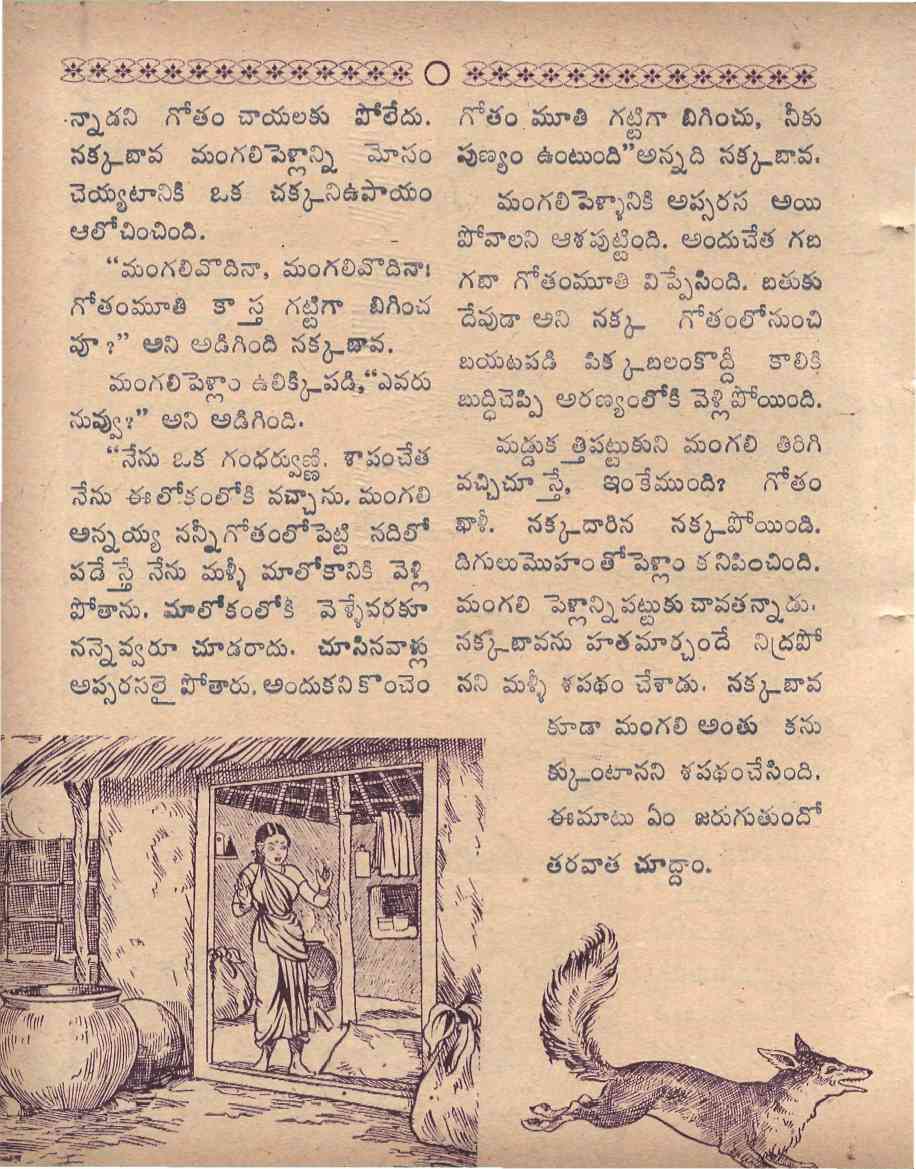 న్నాడని గోతం చాయలకు పోలేదు.
నక్కబావ మంగలిపెళ్లాన్ని మోసం
చెయ్యటానికి ఒక చక్కనిఉపాయం
ఆలోచించింది.
“మంగలివొదినా, మంగలివొదినా!
గోతంమూతి కాస్త గట్టిగా బిగించ
వూ?” అని అడిగింది నక్కబావ.
మంగలిపెళ్లాం ఉలిక్కిపడి, “ఎవరు
నువ్వు?” అని అడిగింది.
“నేను ఒక గంధర్వుణ్ణి. శాపంచేత
నేను ఈలోకంలోకి వచ్చాను. మంగలి
అన్నయ్య నన్నీగోతంలోపెట్టి నదిలో
పడేస్తే నేను మళ్ళీ మాలోకానికి వెళ్లి
పోతాను. మాలోకంలోకి వెళ్ళేవరకూ
నన్నెవ్వరూ చూడరాదు. చూసినవాళ్లు
అప్సరసలై పోతారు. అందుకని కొంచెం
గోతం మూతి గట్టిగా బిగించు, నీకు
పుణ్యం ఉంటుంది” అన్నది నక్కబావ.
మంగలిపెళ్ళానికి అప్సరస అయి
పోవాలని ఆశపుట్టింది. అందుచేత గబ
గబా గోతంమూతి విప్పేసింది. బతుకు
దేవుడా అని నక్క గోతంలోనుంచి
బయటపడి పిక్కబలంకొద్దీ కాలికి
బుద్ధిచెప్పి అరణ్యంలోకి వెళ్లిపోయింది.
మడ్డుకత్తిపట్టుకుని మంగలి తిరిగి
వచ్చిచూస్తే, ఇంకేముంది? గోతం
ఖాళీ. నక్కదారిన నక్కపోయింది.
దిగులుమొహంతో పెళ్లాం కనిపించింది.
మంగలి పెళ్లాన్ని పట్టుకు చావతన్నాడు.
నక్కబావను హతమార్చందే నిద్రపో
నని మళ్ళీ శపథం చేశాడు. నక్కబావ
కూడా మంగలి అంతు కను
క్కుంటానని శపథంచేసింది.
ఈమాటు ఏం జరుగుతుందో
తరవాత చూద్దాం.